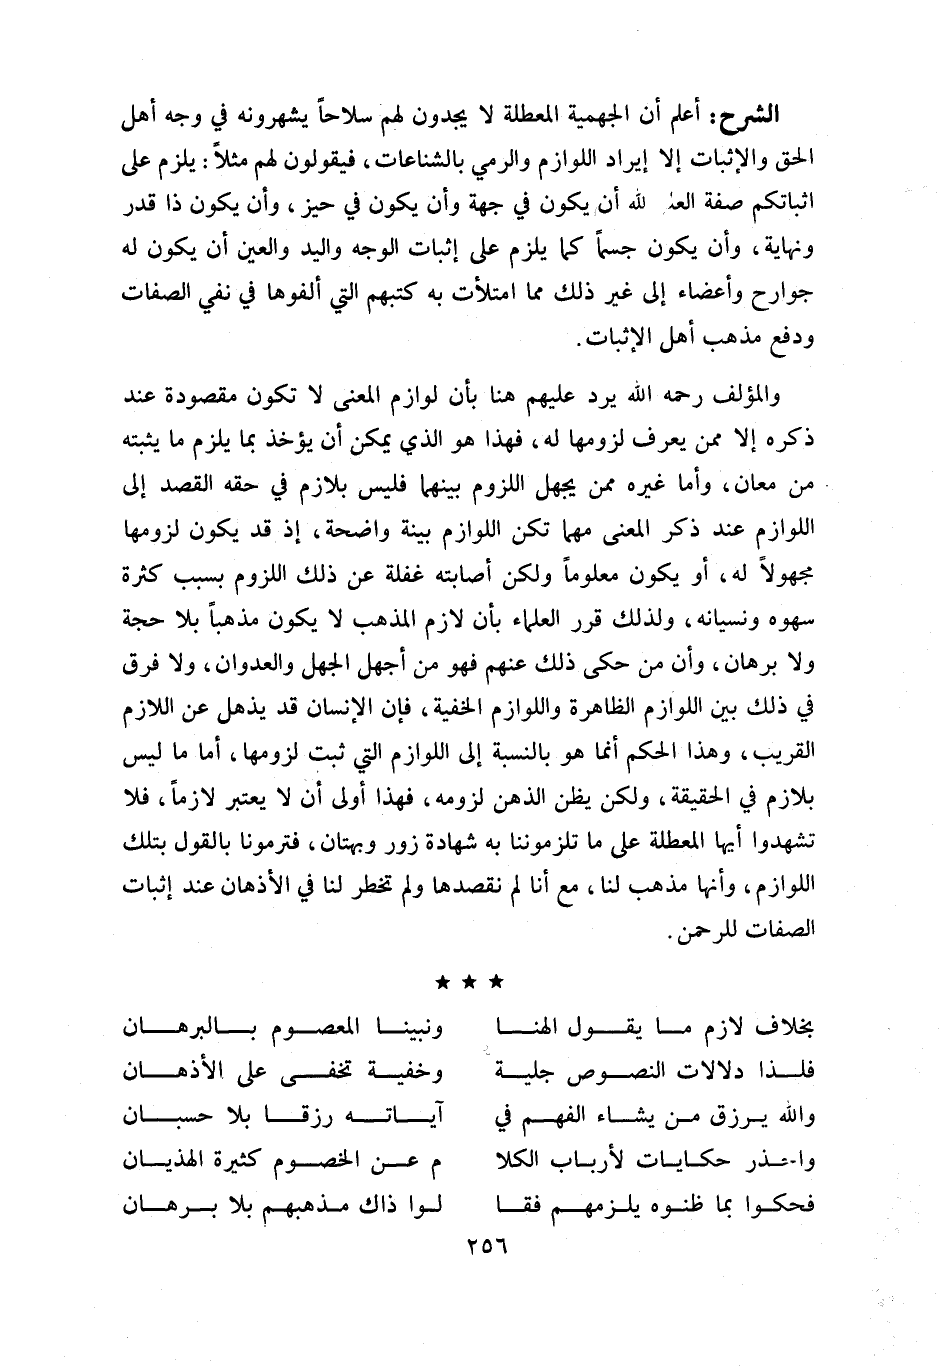 الشرح: أعلم أن الجهمية المعطلة لا يجدون لهم سلاحاً يشهرونه في وجه أهل
الحق والإثبات إلا إيراد اللوازم والرمي بالشناعات، فيقولون لهم مثلاً: يلزم على
اثباتكم صفة لله أن يكون في جهة وأن يكون في حيز، وأن يكون ذا قدر
ونهاية، وأن يكون جسماً كما يلزم على إثبات الوجه واليد والعين أن يكون له
جوارح وأعضاء إلى غير ذلك مما امتلأت به كتبهم التي ألفوها في نفي الصفات
ودفع مذهب أهل الإثبات.
والمؤلف رحمه الله يرد عليهم هنا بأن لوازم المعنى لا تكون مقصودة عند
ذكره إلا ممن يعرف لزومها له، فهذا هو الذي يمكن أن يؤخذ بما يلزم ما يثبته
من معان، وأما غيره ممن يجهل اللزوم بينهما فليس بلازم في حقه القصد إلى
اللوازم عند ذكر المعنى مهما تكن اللوازم بينة واضحة، إذ قد يكون لزومها
مجهولاً له، أو يكون معلوماً ولكن أصابته غفلة عن ذلك اللزوم بسبب كثرة
سهوه ونسيانه، ولذلك قرر العلماء بأن لازم المذهب لا يكون مذهباً بلا حجة
ولا برهان، وأن من حكى ذلك عنهم فهو من أجهل الجهل والعدوان، ولا فرق
في ذلك بين اللوازم الظاهرة واللوازم الخفية، فإن الإنسان قد يذهل عن اللازم
القريب، وهذا الحكم أنما هو بالنسبة إلى اللوازم التي ثبت لزومها، أما ما ليس
بلازم في الحقيقة، ولكن يظن الذهن لزومه، فهذا أولى أن لا يعتبر لازماً، فلا
تشهدوا أيها المعطلة على ما تلزموننا به شهادة زور وبهتان، فترمونا بالقول بتلك
اللوازم، وأنها مذهب لنا، مع أنا لم نقصدها ولم تخطر لنا في الأذهان عند إثبات
الصفات للرحمن.
★ ★ ★
بخلاف لازم ما يقول الهنا ونبينا المعصوم بالبرهان
فلذا دلالات النصوص جلية وخفية تخفى على الأذهان
والله يرزق من يشاء الفهم في آياته رزقا بلا حسبان
واحذر حكايات لأرباب الكلا م عن الخصوم كثيرة الهذيان
فحكوا بما ظنوه يلزمهم فقا لوا ذاك مذهبهم بلا برهان
٢٥٦